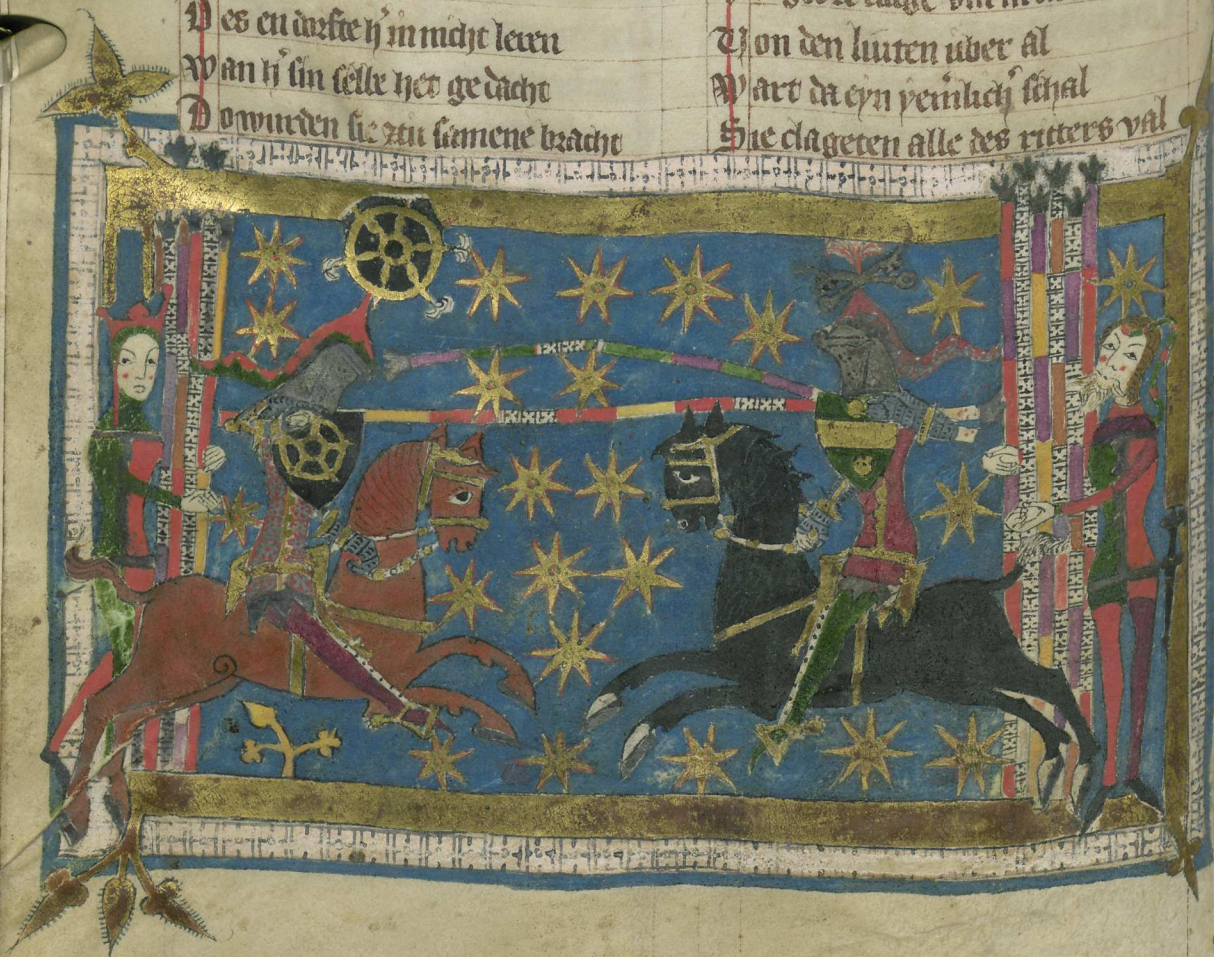 Des en dorfte h' in nicht leren
Wan h' sin selbe het ge dacht
Do wurden sie ztu samene bracht
Von den luiten uber al
Wart da eyn yemirlich' schal
Sie clageten alle des ritters val